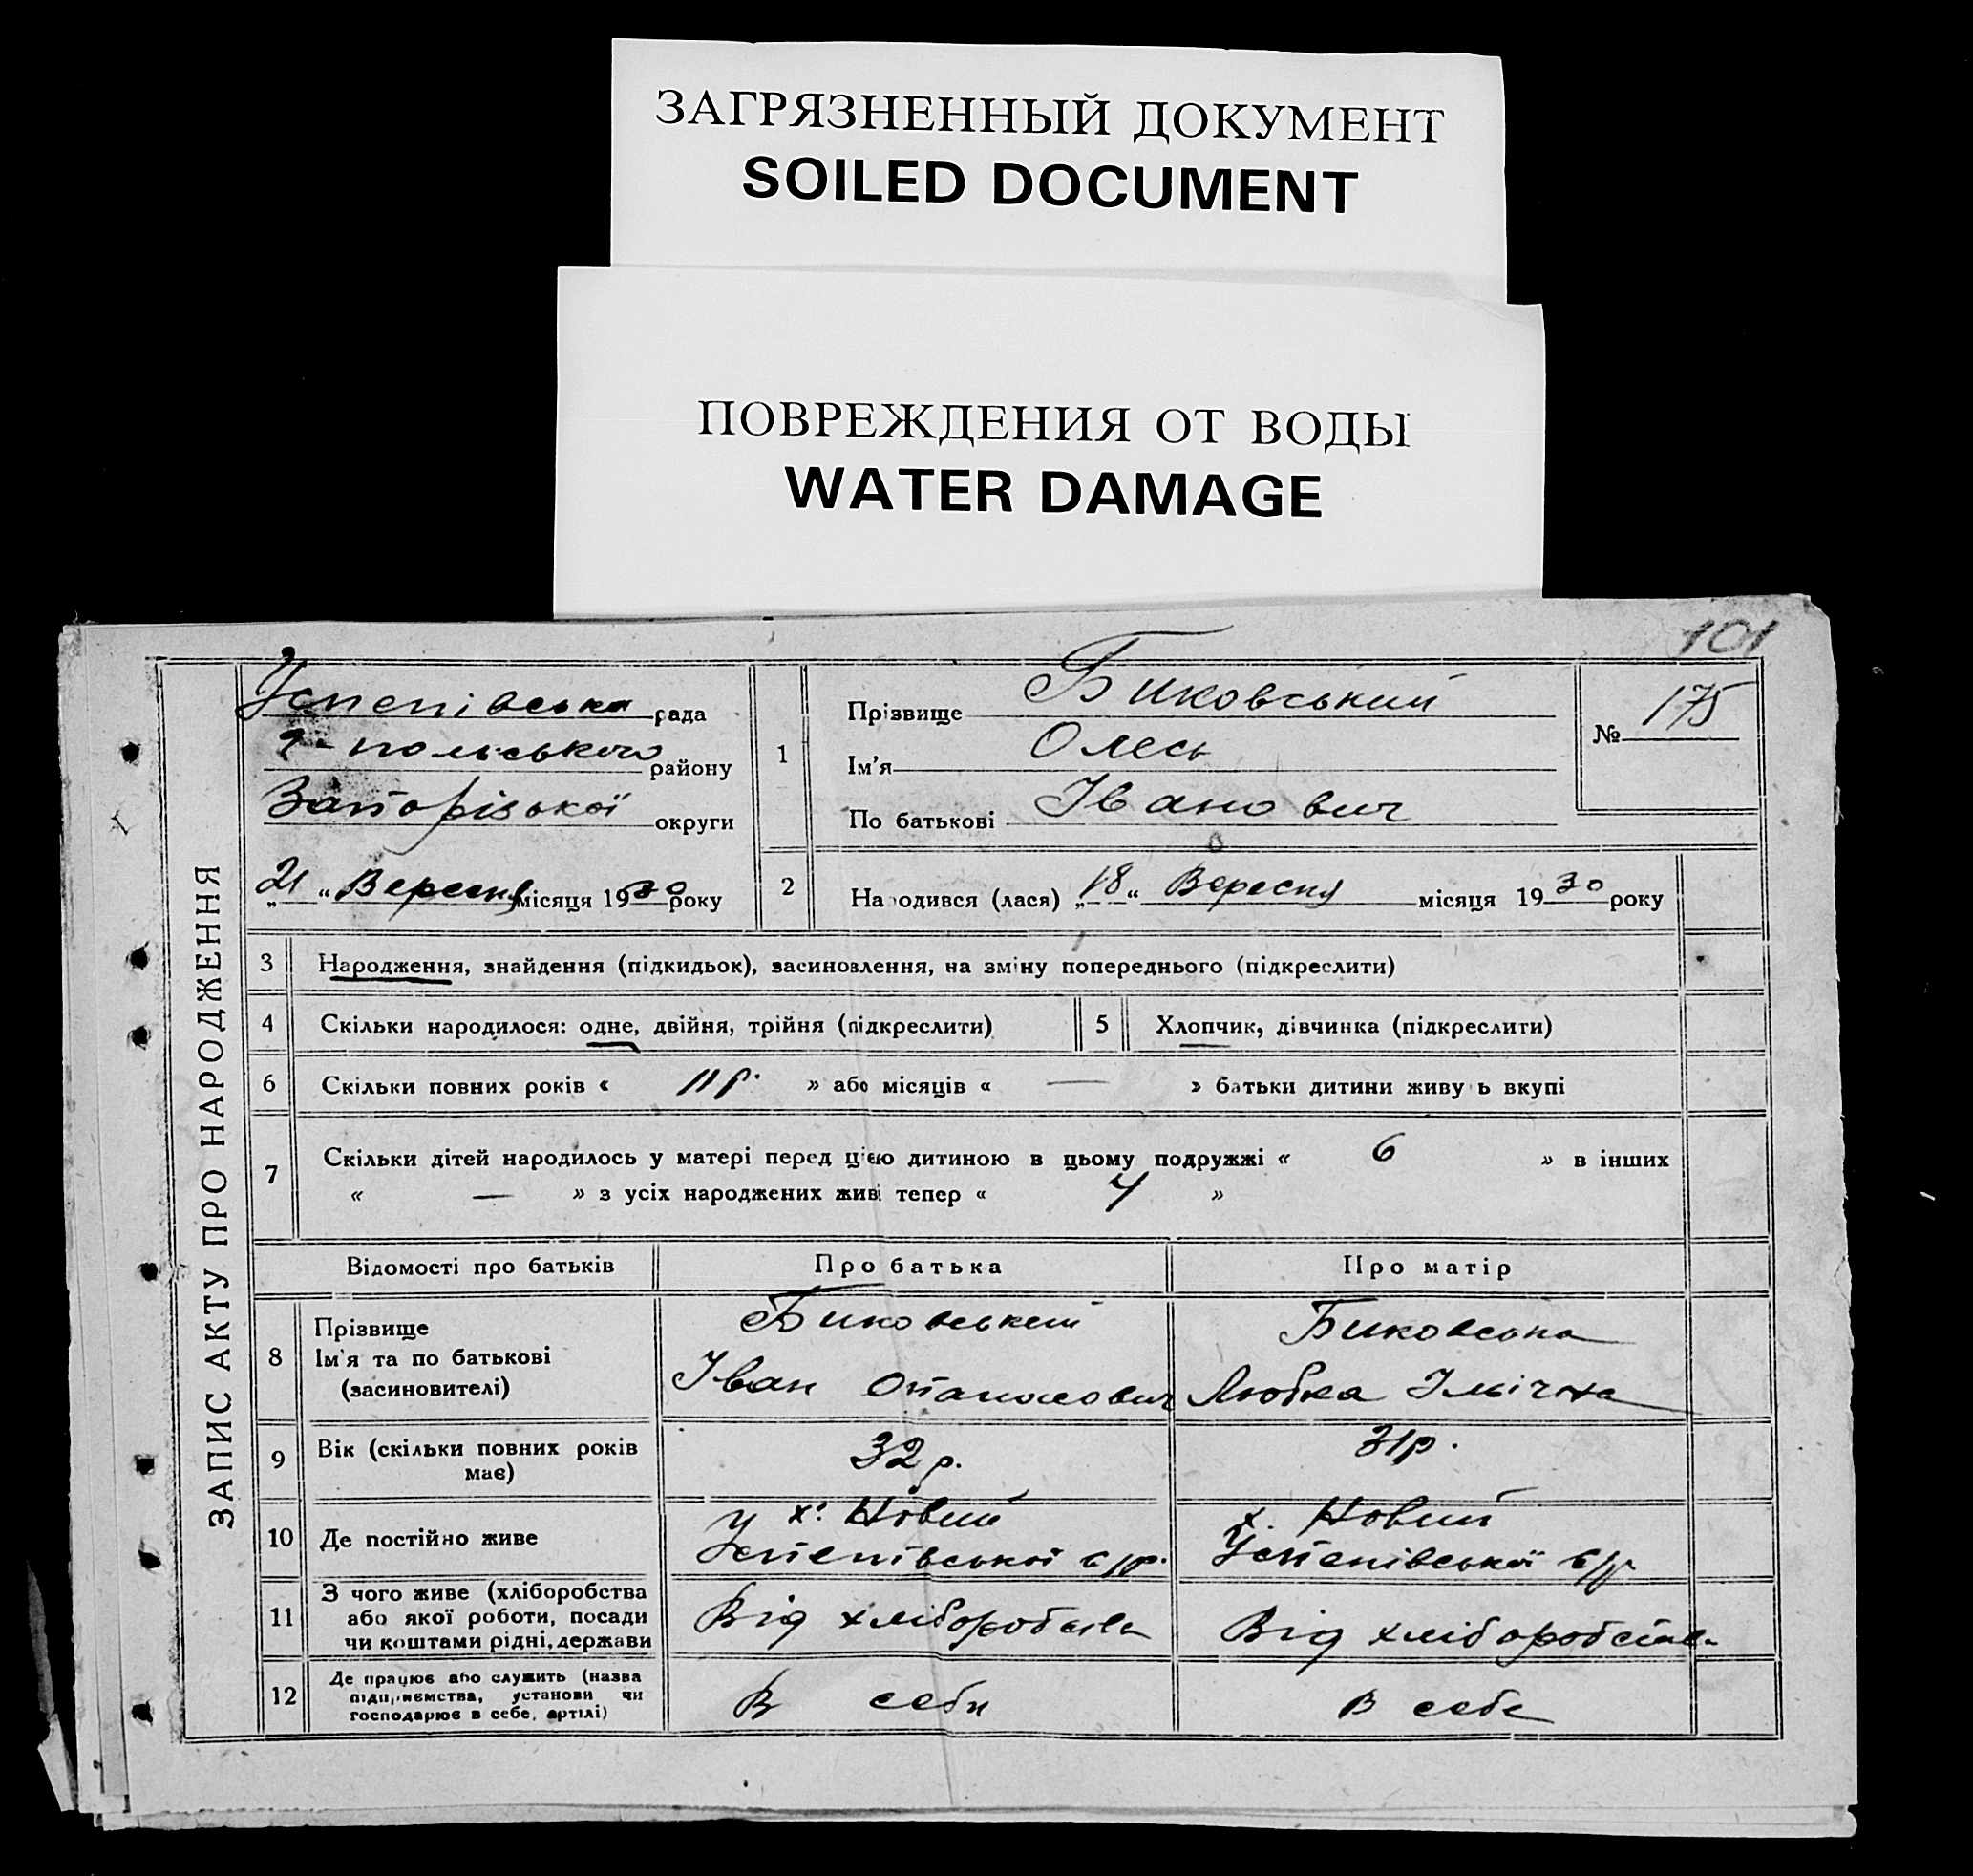 ЗАГРЯЗНЕННЫЙ ДОКУМЕНТ
SOILED DOCUMENT
ПОВРЕЖДЕНИЯ ОТ ВОДЫ
WATER DAMAGE
101
ЗАПИС АКТУ ПРО НАРОДЖЕННЯ
Успенівська рада
польського району
Запорізької округи
„21“ Вересня місяця 1930 року
1
Прізвище Биковський
Ім'я Олесь
По батькові Іванович
№ 175
2 Народився (лася) „18“ Вересня місяця 1930 року
3 Народження, знайдення (підкидьок), засиновлення, на зміну попереднього (підкреслити)
4 Скільки народилося: одне, двійня, трійня (підкреслити) 5 Хлопчик, дівчинка (підкреслити)
6 Скільки повних років « 11 р. » або місяців « — » батьки дитини живуть вкупі
7 Скільки дітей народилось у матері перед цією дитиною в цьому подружжі « 6 » в інших
« — » з усіх народжених живі тепер « 4 »
Відомості про батьків Про батька Про матір
8 Прізвище
Ім'я та по батькові
(засиновителі)
Биковський
Іван Опанасович
Биковська
Любка
9 Вік (скільки повних років
має)
32 р. 31 р.
10 Де постійно живе
У х. Новий
Успенівської с/р.
х. Новий
Успенівської с/р
11 З чого живе (хліборобства
або якої роботи, посади
чи коштами рідні, держави
Від хліборобства Від хліборобства
12 Де працює або служить (назва
підприємства, установи чи
господарює в себе, артілі)
В себи В себе